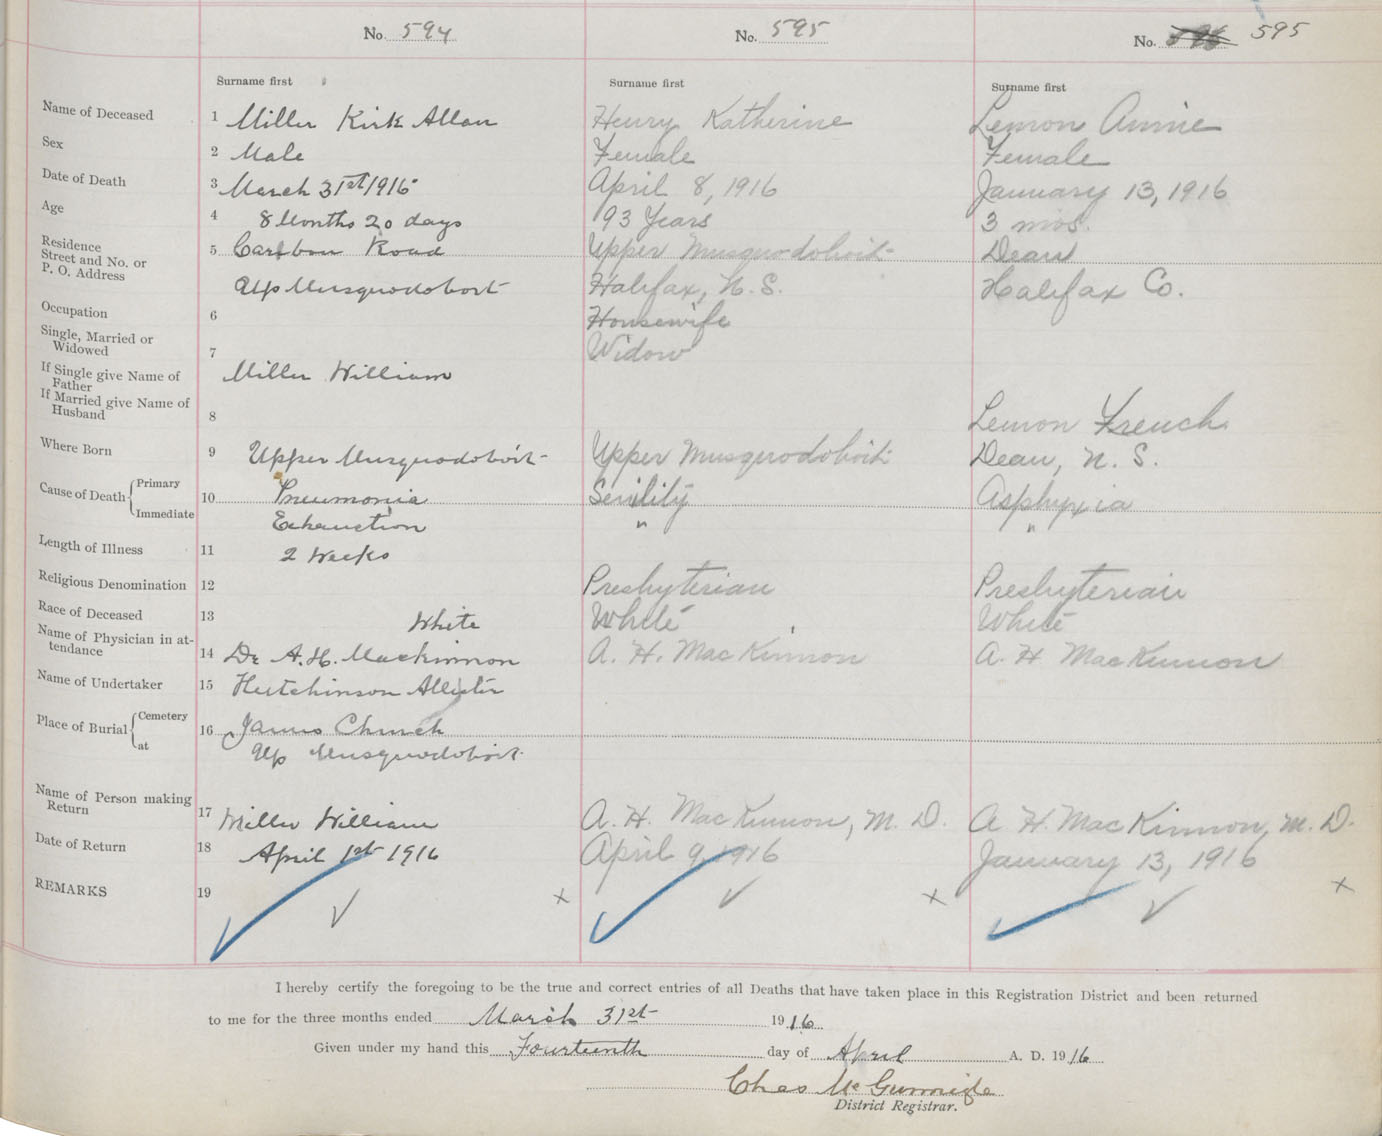 No. 594
No. 595
No. 596 595
Surname first
Surname first
Surname first
Name of Deceased 1 Miller Kirk Allan
Henry Katherine
Lemon Annie
Sex 2 Male
Female
Female
Date of Death 3 March 31st 1916
April 8, 1916
January 13, 1916
Age 4 8 Months 20 days
93 Years
3 mos.
Residence
Street and No. or
P. O. Address
5 Caribou Road
Upper Musquodoboit
Dean
Up Musquodoboit
Halifax, N. S.
Halifax Co.
Occupation 6
Housewife
Single, Married or
Widowed
7
Widow
If Single give Name of
Father
Miller William
If Married give Name of
Husband
8
Lemon French
Where Born 9 Upper Musquodoboit
Upper Musquodoboit
Dean, N. S.
Cause of Death { Primary
Immediate
10 Pneumonia
Senility
Asphyxia
Exhaustion
"
"
Length of Illness 11 2 Weeks
Religious Denomination 12
Presbyterian
Presbyterian
Race of Deceased 13 White
White
White
Name of Physician in at-
tendance
14 Dr A. H. Mackinnon
A. H. MacKinnon
A. H MacKinnon
Name of Undertaker 15 Hutchinson Allister
Place of Burial { Cemetery
at
16 James Church
Up Musquodoboit
Name of Person making
Return
17 Miller William
A. H. MacKinnon, M. D.
A H. MacKinnon, M. D.
Date of Return 18 April 1st 1916
April 9, 1916
January 13, 1916
REMARKS 19
I hereby certify the foregoing to be the true and correct entries of all Deaths that have taken place in this Registration District and been returned
to me for the three months ended March 31st 1916
Given under my hand this Fourteenth day of April A. D. 1916
Chas Mc
District Registrar.